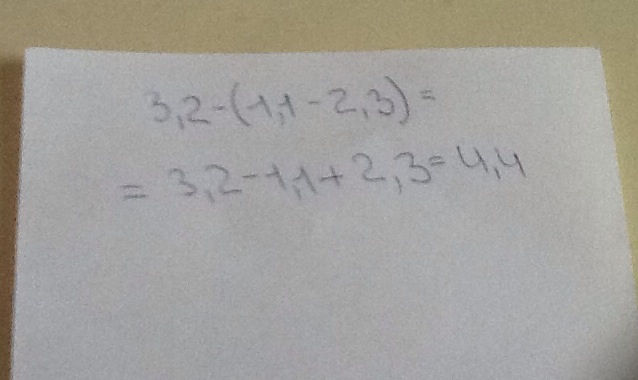 3,2-(1,1-2,3)=
=3,2-1,1+2,3=4,4